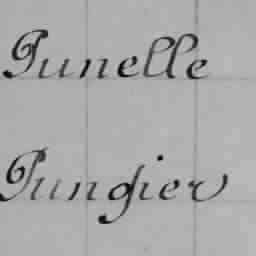 Punelle
Pungier